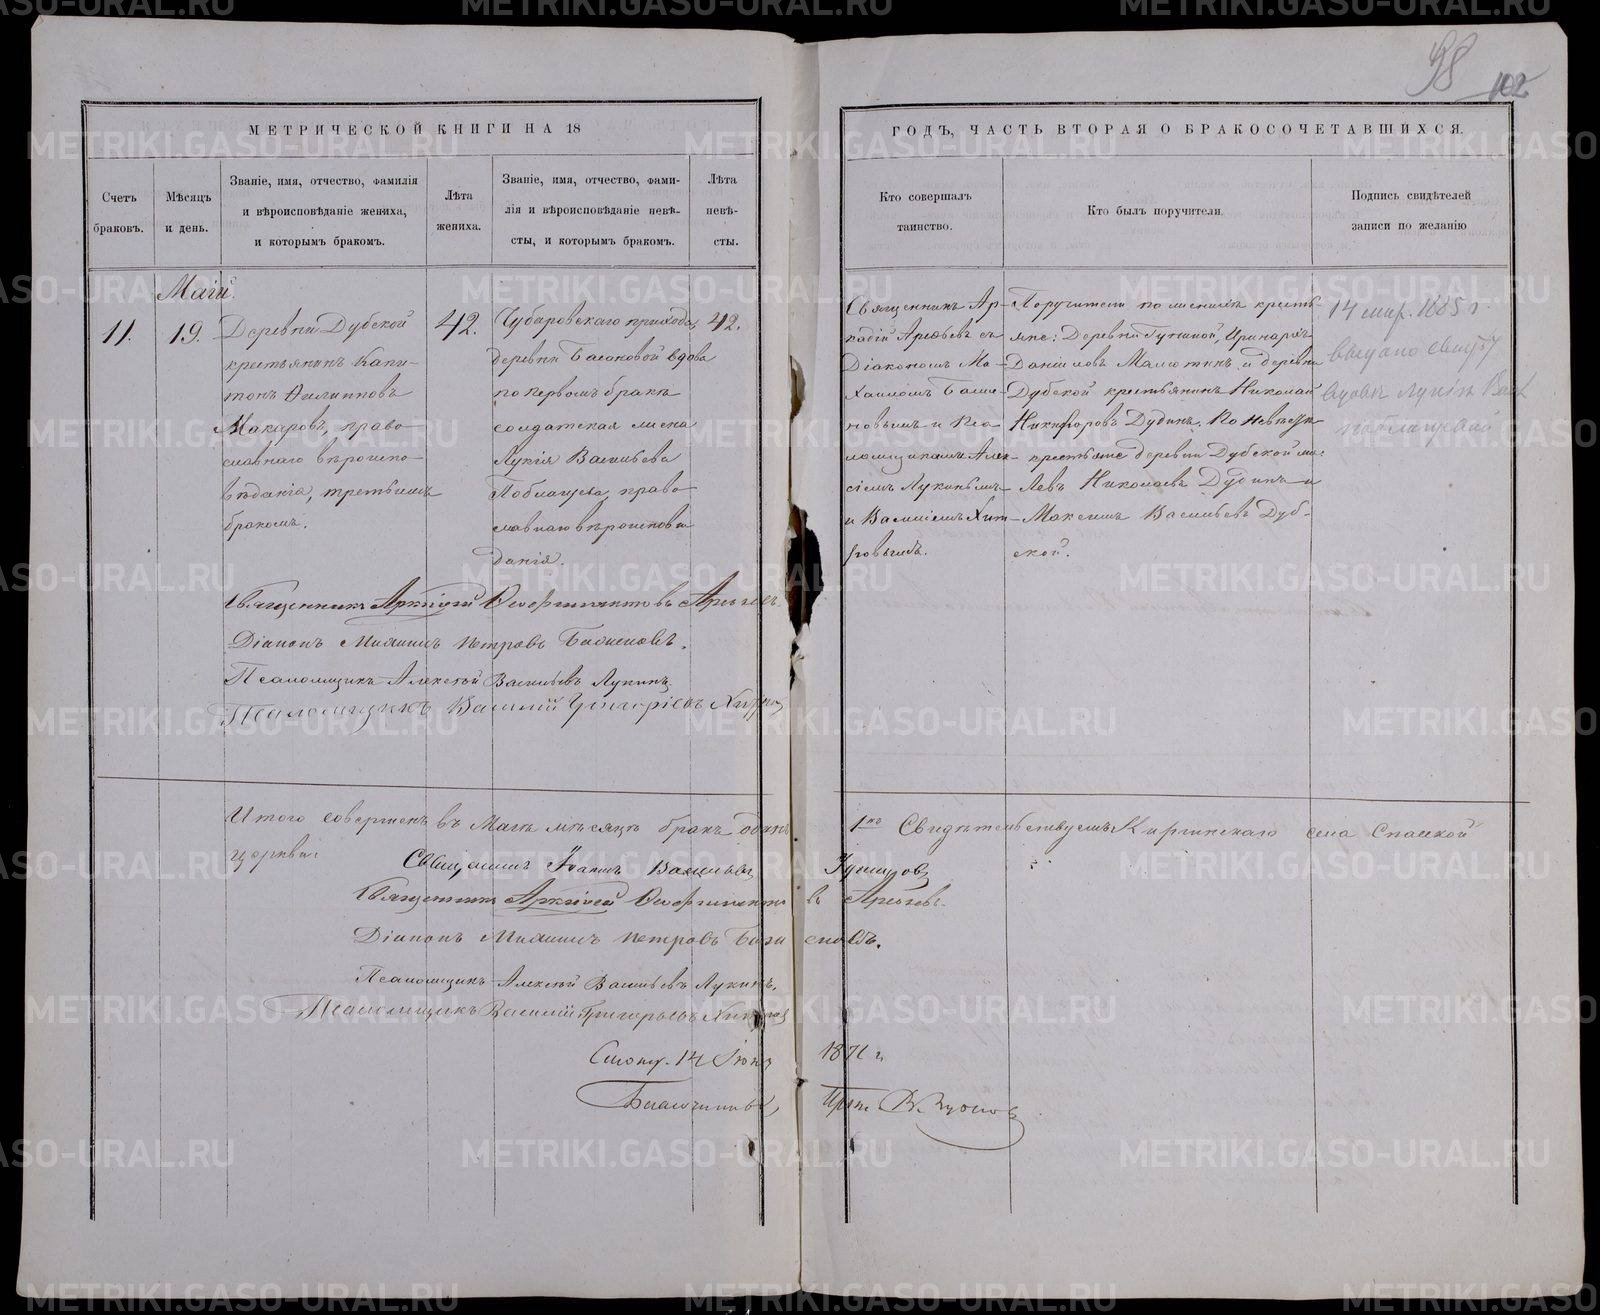 98
102
МЕТРИЧЕСКОЙ КНИГИ НА 18
ГОДЪ, ЧАСТЬ ВТОРАЯ О БРАКОСОЧЕТАВШИХСЯ.
Счетъ
браковъ.
Мѣсяцъ
и день.
Званіе, имя, отчество, фамилія
и вѣроисповѣданіе жениха,
и которымъ бракомъ.
Лѣта
жениха.
Званіе, имя, отчество, фами-
лія и вѣроисповѣданіе невѣ-
сты, и которымъ бракомъ.
Лѣта
невѣ-
сты.
Кто совершалъ
таинство.
Кто былъ поручители.
Подпись свидѣтелей
записи по желанію
Маій.
11.
19.
Деревни Дубской
крестьянинъ Капи-
тонъ Филипповъ
Макаровъ, право-
славнаго вѣроиспо-
вѣданія, третьимъ
бракомъ.
42.
Чубаровскаго прихода,
деревни Басковой вдова
по первомъ бракѣ
солдатская жена
Лукія Васильева
право-
славнаго вѣроисповѣ
данія.
42.
Священникъ Ар-
кадій Арефьевъ съ
Діакономъ Ми-
хаиломъ Баже-
новымъ и Пса-
ломщиками Алек-
сіемъ Лукинымъ
и Василіемъ Хит-
ровымъ.
Поручители по женихѣ кресть-
яне: Деревни Гуниной, Иринархъ
Даніиловъ Мамоткинъ и деревни
Дубской крестьянинъ Николай
Никифоровъ Дудинъ. По невѣстѣ
крестьяне деревни Дубской
Левъ Николаевъ Дудинъ и
Максимъ Васильевъ Дуб-
ской.
14 мар. 1885 г.
выдано свид. 57
вдовѣ Лукіѣ Вас.
Священникъ Аркадій Феофилактовъ Арефьевъ.
Діаконъ Михаилъ Петровъ Баженовъ.
Псаломщикъ Алексѣй Васильевъ Лукинъ.
Псаломщикъ Василій Григорьевъ Хитровъ
Итого совершенъ въ Маѣ мѣсяцѣ бракъ одинъ 1нъ Свидѣтельствуемъ Киргинскаго села Спасской
церкви:
Священникъ Іоаннъ Васильевъ
Священникъ Аркадій Феофилактовъ Арефьевъ.
Діаконъ Михаилъ Петровъ Баженовъ.
Псаломщикъ Алексѣй Васильевъ Лукинъ.
Псаломщикъ Василій Григорьевъ Хитровъ
14 Іюня 1871 г.
METRIKI.GASO-URAL.RU